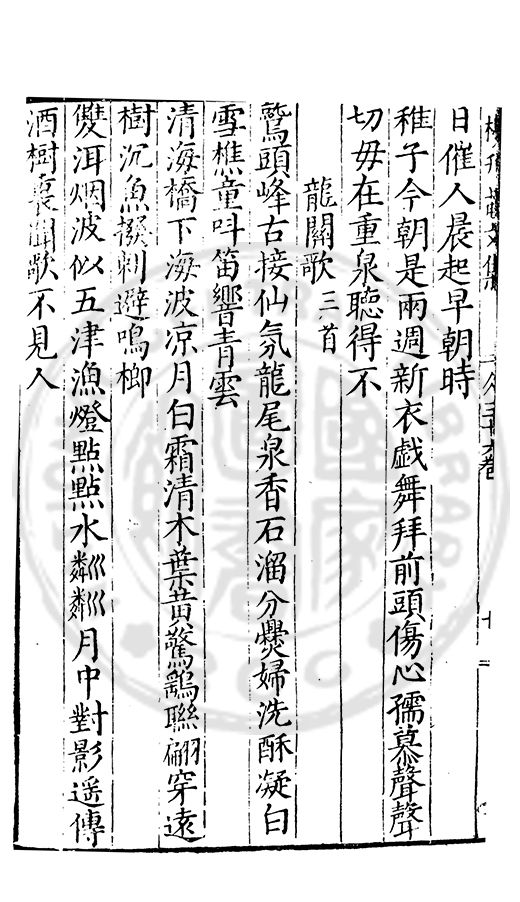 日催人晨起早朝時
稚子今朝是兩週新衣戯舞拜前頭傷心孺慕聲聲
切毋在重泉聴得不
龍關歌三首
鷲頭峰古接仙氛龍尾泉香石溜分爨婦洗酥凝白
雪樵童呌笛響青雲
清海橋下海波凉月白霜清木葉黄驚鷁聮翩穿遠
樹沉魚撥剌避鳴榔
雙洱烟波似五津漁燈點點水粼粼月中對影遥傳
酒樹裏聞歌不見人